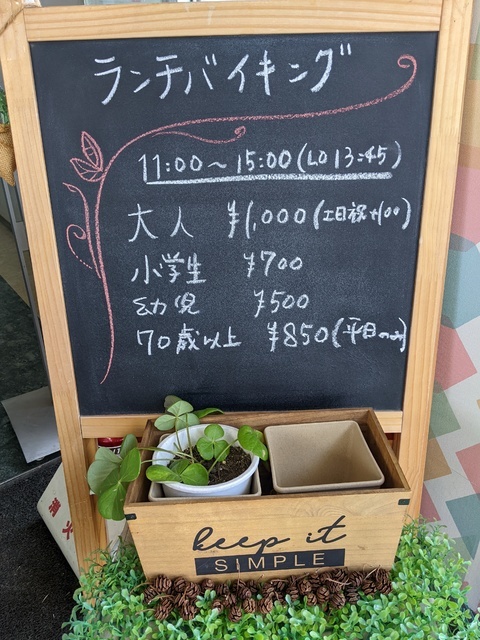 ランチバイキング
11:00〜15:00(LO 13:45)
大人 ¥1,000(土日祝+100)
小学生 ¥700
幼児 ¥500
70歳以上 ¥850(平日のみ)
消火
keep it
SIMPLE